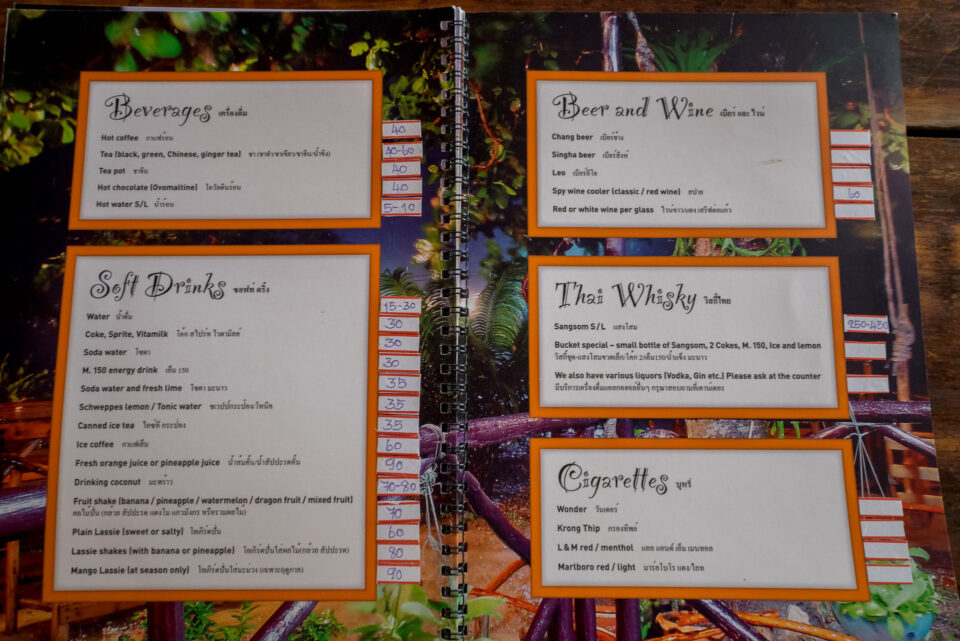 Beverages เครื่องดื่ม
Hot coffee กาแฟร้อน 40
Tea (black, green, Chinese, ginger tea) ชา (ชาดำ/ชาเขียว/ชาจีน/น้ำขิง) 40-60
Tea pot ชาจีน 40
Hot chocolate (Ovomaltine) โอวัลตินร้อน 40
Hot water S/L น้ำร้อน 5-10
Soft Drinks ซอฟท์ ดริ้ง
Water น้ำดื่ม 15-30
Coke, Sprite, Vitamilk โค้ก สไปร์ท ไวตามิลค์ 30
Soda water โซดา 30
M. 150 energy drink เอ็ม 150 30
Soda water and fresh lime โซดา มะนาว 35
Schweppes lemon / Tonic water ชเวปป์กระป๋อง/โทนิค 35
Canned ice tea ไอซ์ที กระป๋อง 35
Ice coffee กาแฟเย็น 60
Fresh orange juice or pineapple juice น้ำส้มคั้น/น้ำสัปปะรดคั้น 90
Drinking coconut มะพร้าว 70-80
Fruit shake (banana / pineapple / watermelon / dragon fruit / mixed fruit) 70
ผลไม้ปั่น (กล้วย สัปปะรด แตงโม แก้วมังกร หรือรวมผลไม้)
Plain Lassie (sweet or salty) โยเกิร์ตปั่น 60
Lassie shakes (with banana or pineapple) โยเกิร์ตปั่นใส่ผลไม้ (กล้วย สัปปะรด) 80
Mango Lassie (at season only) โยเกิร์ตปั่นใส่มะม่วง (เฉพาะฤดูกาล) 90
Beer and Wine เบียร์ และ ไวน์
Chang beer เบียร์ช้าง
Singha beer เบียร์สิงห์
Leo เบียร์ลีโอ
Spy wine cooler (classic / red wine) สปาย 60
Red or white wine per glass ไวน์ขาว/แดง เสริฟต่อแก้ว
Thai Whisky วิสกี้ไทย
Sangsom S/L แสงโสม 250-450
Bucket special – small bottle of Sangsom, 2 Cokes, M. 150, Ice and lemon
วิสกี้ชุด-แสงโสมขวดเล็ก/โค้ก 2/เอ็ม150/น้ำแข็ง มะนาว
We also have various liquors (Vodka, Gin etc.) Please ask at the counter
มีบริการเครื่องดื่มแอลกอฮอล์อื่นๆ กรุณาสอบถามที่เคาน์เตอร์
Cigarettes บุหรี่
Wonder วันเดอร์
Krong Thip กรองทิพย์
L & M red / menthol แอล แอนด์ เอ็ม เมนทอล
Marlboro red / light มาร์ลโบโร แดง/ไลท